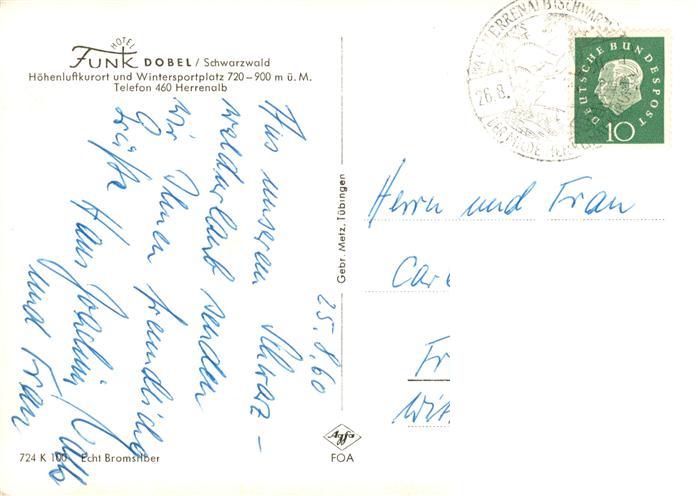 HOTEL
FUNK DOBEL / Schwarzwald
Höhenluftkurort und Wintersportplatz 720–900 m ü. M.
Telefon 460 Herrenalb
25.8.60
Aus unserem Schwarz-
waldurlaub senden
wir Ihnen freundliche
Grüße Hans Joachim
und Frau
724 K 100 Echt Bromsilber
Gebr. Metz, Tübingen
Agfa
FOA
HERRENALB (SCHWARZ
26.8.
DEUTSCHE BUNDESPOST
10
Herrn und Frau
Car
Fr
Wit